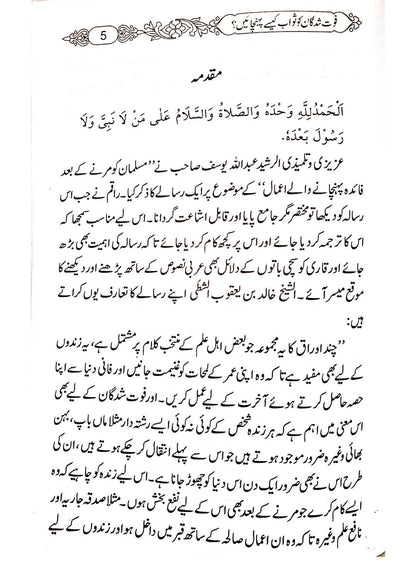 فوت شدگان کو ثواب کیسے پہنچائیں؟
5
مقدمہ
اَلْحَمْدُلِلّٰهِ وَحْدَهٗ وَالصَّلَاةُ وَالسَّلَامُ عَلٰی مَنْ لَا نَبِیَّ وَلَا
رَسُوْلَ بَعْدَهٗ.
عزیزی وتلمیذی الرشید عبداللہ یوسف صاحب نے ’’مسلمان کو مرنے کے بعد
فائدہ پہنچانے والے اعمال‘‘ کے موضوع پر ایک رسالے کا ذکر کیا۔ راقم نے جب اس
رسالہ کو دیکھا تو مختصر مگر جامع پایا اور قابل اشاعت گردانا۔ اس لیے مناسب سمجھا کہ
اس کا ترجمہ کر دیا جائے اور اس پر کچھ کام کر دیا جائے تا کہ رسالہ کی اہمیت بھی بڑھ
جائے اور قاری کو سچی باتوں کے دلائل بھی عربی نصوص کے ساتھ پڑھنے اور دیکھنے کا
موقع میسر آئے۔ الشیخ خالد بن یعقوب الشطی اپنے رسالے کا تعارف یوں کراتے
ہیں:
’’چند اوراق کا یہ مجموعہ جو بعض اہل علم کے منتخب کلام پر مشتمل ہے، یہ زندوں
کے لیے بھی مفید ہے تا کہ وہ اپنی عمر کے لمحات کو غنیمت جانیں اور فانی دنیا سے اپنا
حصہ حاصل کرتے ہوئے آخرت کے لیے عمل کریں۔ اور فوت شدگان کے لیے بھی
اس معنی میں اہم ہے کہ ہر زندہ شخص کے کوئی نہ کوئی ایسے رشتہ دار مثلا ماں باپ، بہن
بھائی وغیرہ ضرور موجود ہوتے ہیں جو اس سے پہلے انتقال کر چکے ہوتے ہیں، ان کی
طرح اس نے بھی ضرور ایک دن اس دنیا کو چھوڑ جانا ہے۔ اس لیے زندہ کو چاہیے کہ وہ
ایسے کام کرے جو مرنے کے بعد بھی اس کے لیے نفع بخش ہوں۔ مثلا صدقہ جاریہ اور
نافع علم وغیرہ تا کہ وہ ان اعمال صالحہ کے ساتھ قبر میں داخل ہو اور زندوں کے لیے